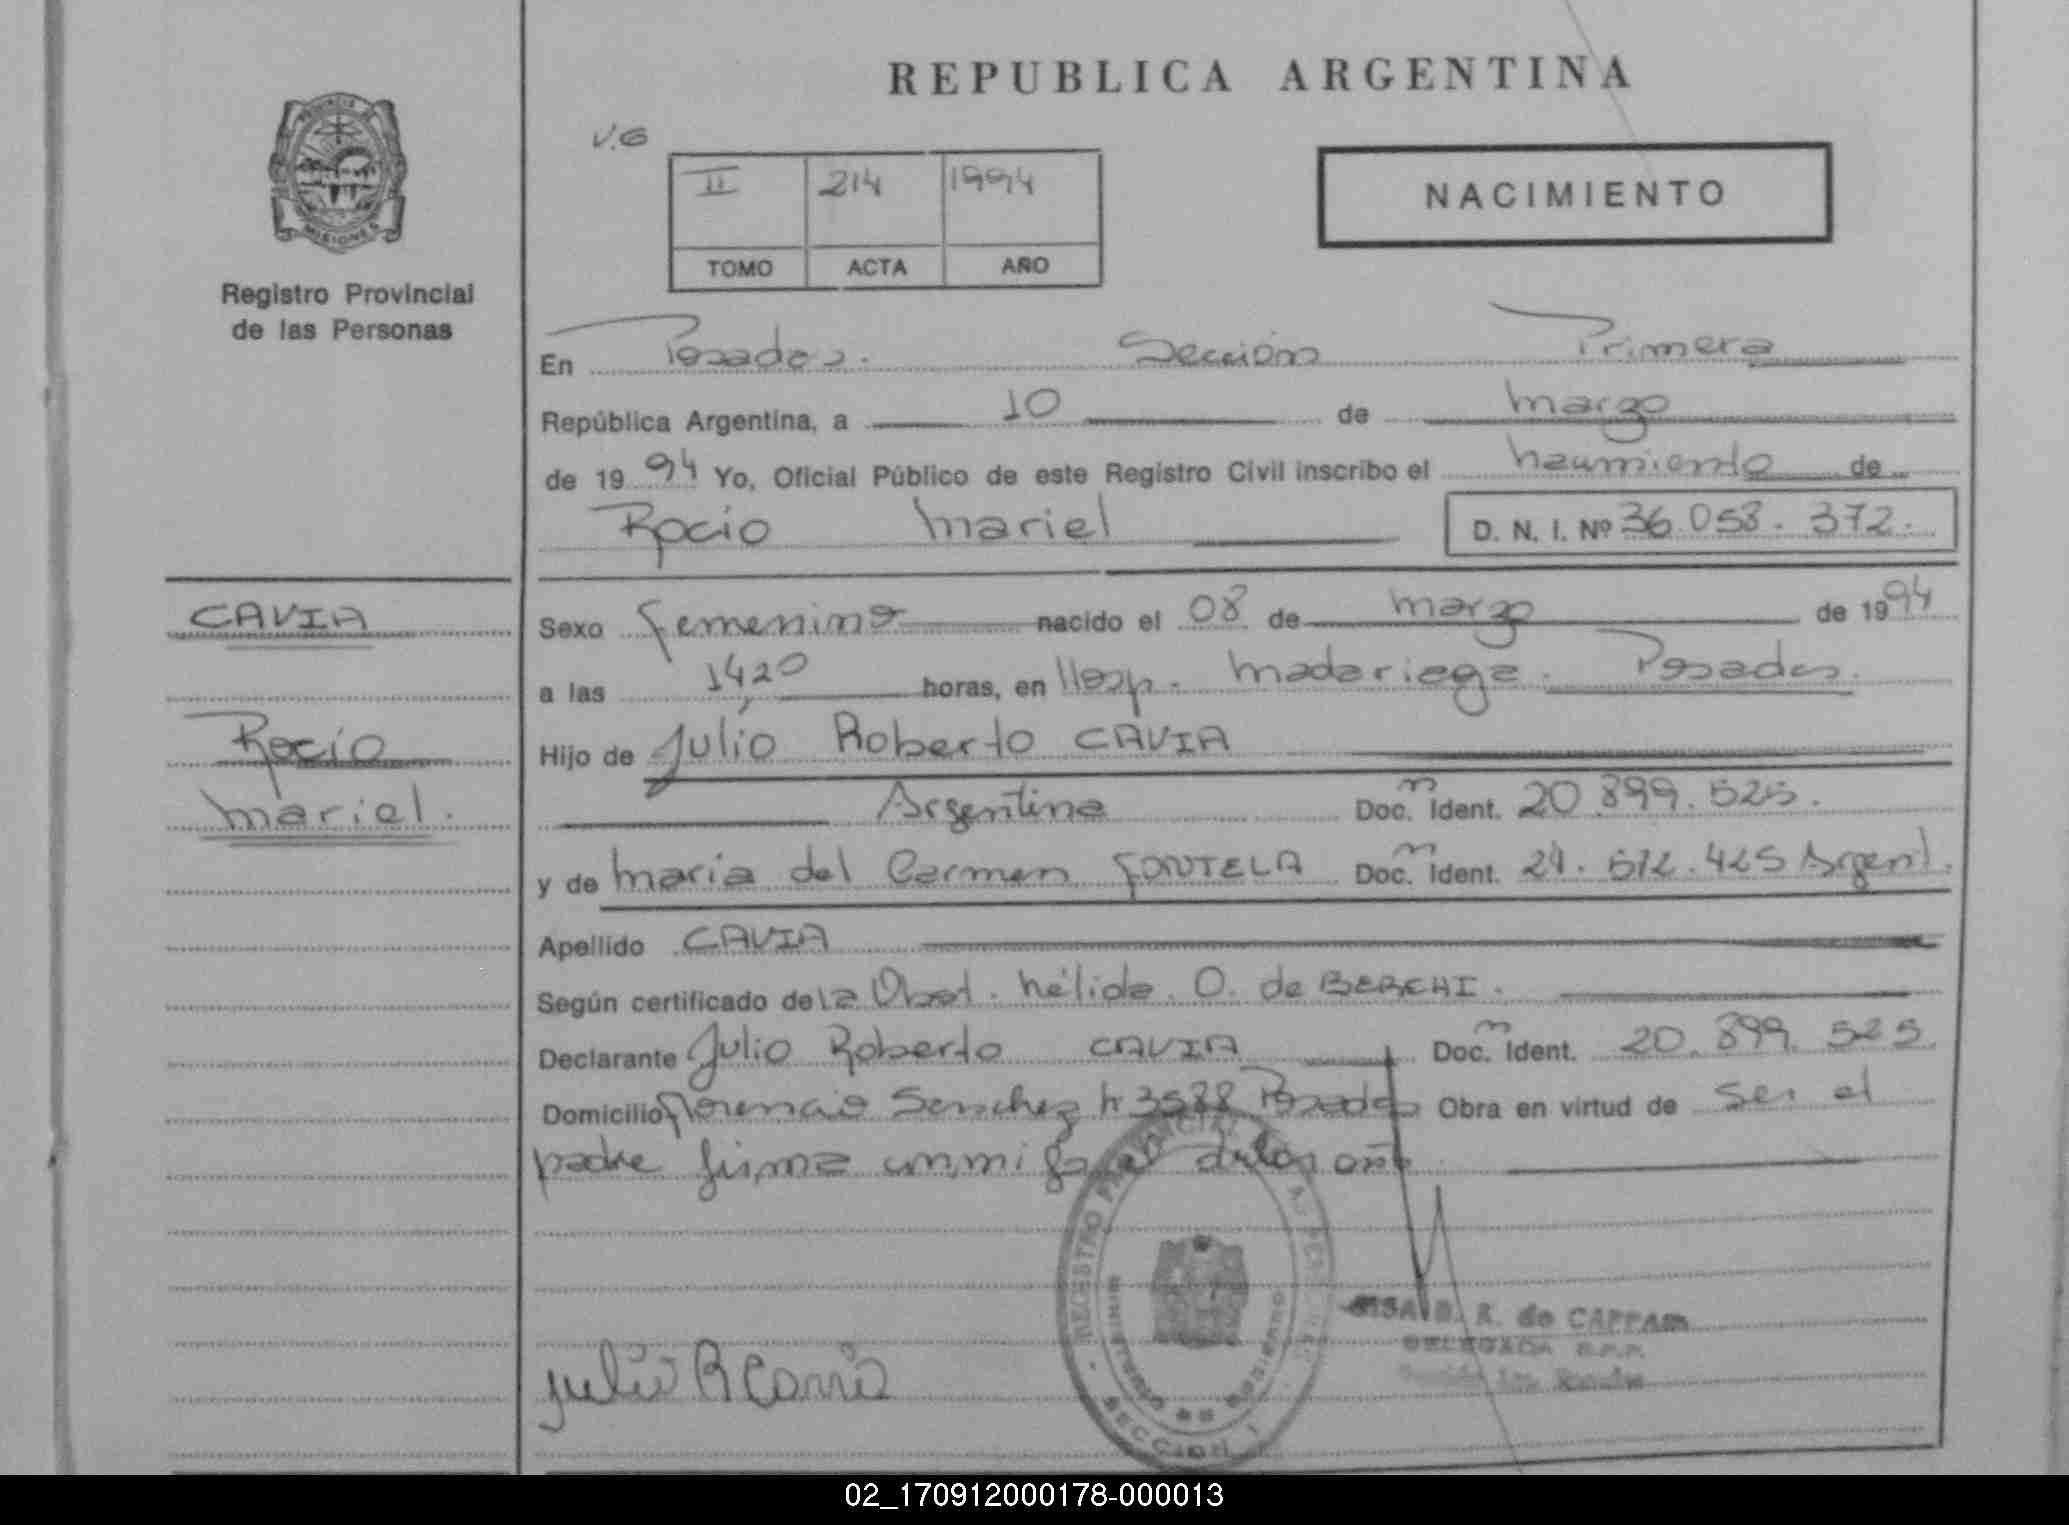 REPUBLICA ARGENTINA
PROVINCIA
MISIONES
Registro Provincial
de las Personas
V.G
II 214 1994
TOMO ACTA AÑO
NACIMIENTO
En Posadas. Sección Primera
República Argentina, a 10 de marzo
de 1994 Yo, Oficial Público de este Registro Civil inscribo el nacimiento de
Rocio Mariel D. N. I. Nº 36.058.372.
CAVIA
Rocío
Mariel.
Sexo femenino nacido el 08 de marzo de 1994
a las 14,20 horas, en Hosp. Madariaga. Posadas.
Hijo de Julio Roberto CAVIA
Argentina Doc. Ident. 20.899.525.
y de Maria del Carmen FONTELA Doc. Ident. 24.572.425 Argent.
Apellido CAVIA
Según certificado de la Obst. Nélida O. de BERCHI.
Declarante Julio Roberto CAVIA Doc. Ident. 20.899.525.
Domicilio Florencio Sanchez n 3588 Posadas Obra en virtud de ser el
padre firma conmigo
REGISTRO PROVINCIAL DE LAS PERSONAS
MINISTERIO DE GOBIERNO
SECCION 1
Julio R Cavia
B. R. de CAPPAM
DELEGADA R.P.P.
02_170912000178-000013